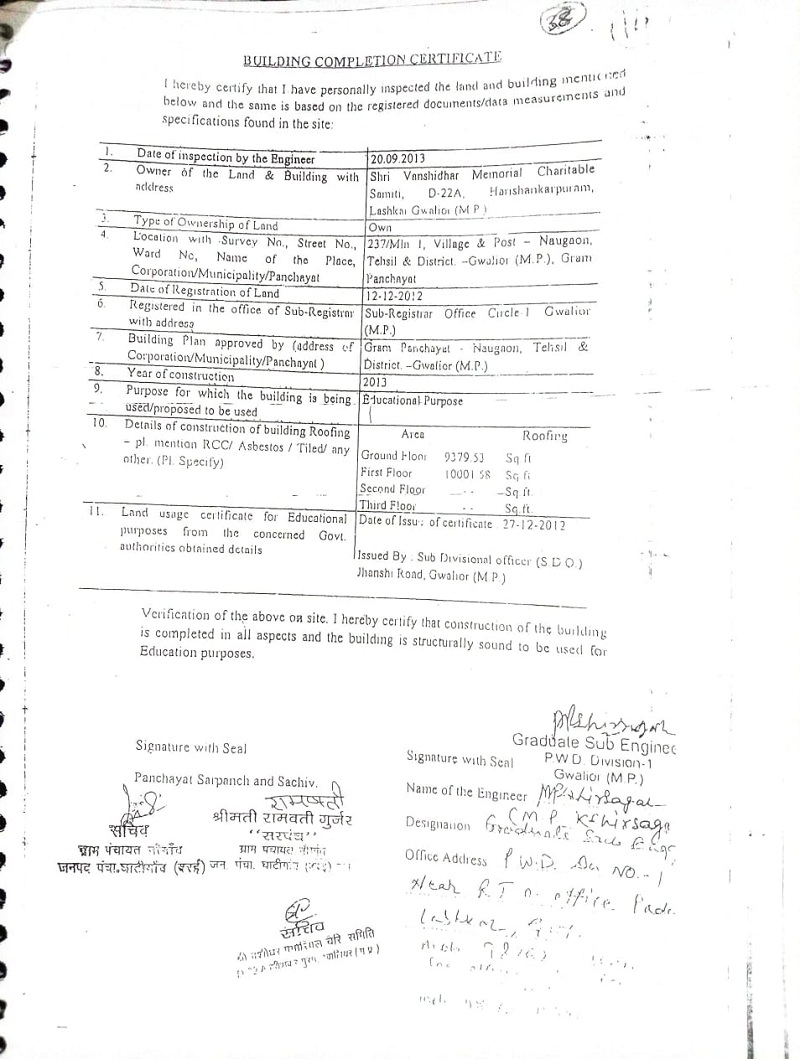 38
BUILDING COMPLETION CERTIFICATE
I hereby certify that I have personally inspected the land and building mentioned
below and the same is based on the registered documents/data measurements and
specifications found in the site:
1. Date of inspection by the Engineer 20.09.2013
2. Owner of the Land & Building with address
Shri Vanshidhar Memorial Charitable
Samiti, D-22A, Harishankarpuram,
Lashkar Gwalior (M.P.)
3. Type of Ownership of Land Own
4. Location with Survey No., Street No.,
Ward No, Name of the Place,
Corporation/Municipality/Panchayat
237/Min 1, Village & Post – Naugaon,
Tehsil & District. –Gwalior (M.P.), Gram
Panchayat
5. Date of Registration of Land 12-12-2012
6. Registered in the office of Sub-Registrar
with address
Sub-Registrar Office Circle-1 Gwalior
(M.P.)
7. Building Plan approved by (address of
Corporation/Municipality/Panchayat)
Gram Panchayat - Naugaon, Tehsil &
District. –Gwalior (M.P.)
8. Year of construction 2013
9. Purpose for which the building is being
used/proposed to be used
Educational Purpose
10. Details of construction of building Roofing
– pl. mention RCC/ Asbestos / Tiled/ any
other. (Pl. Specify)
Area Roofing
Ground Floor 9379.53 Sq ft
First Floor 10001.58 Sq ft
Second Floor -- Sq ft.
Third Floor -- Sq.ft.
11. Land usage certificate for Educational
purposes from the concerned Govt.
authorities obtained details
Date of Issue of certificate 27-12-2012
Issued By : Sub Divisional officer (S.D.O.)
Jhanshi Road, Gwalior (M.P.)
Verification of the above on site. I hereby certify that construction of the building
is completed in all aspects and the building is structurally sound to be used for
Education purposes.
Signature with Seal
Panchayat Sarpanch and Sachiv.
सचिव
ग्राम पंचायत नौगाँव
जनपद पंचा.घाटीगाँव (बरई)
रामवती
श्रीमती रामवती गुर्जर
"सरपंच"
ग्राम पंचायत नौगांव
जन. पंचा. घाटीगांव
सचिव
Graduate Sub Enginee
Signature with Seal P.W.D. Division-1
Gwalior (M.P.)
Name of the Engineer MPKhirsagar
(M.P. Kshirsaga
Designation Graduate Sub Engg
Office Address P.W.D. Dn NO.-1
Near R.T.O. office
Lashkar,